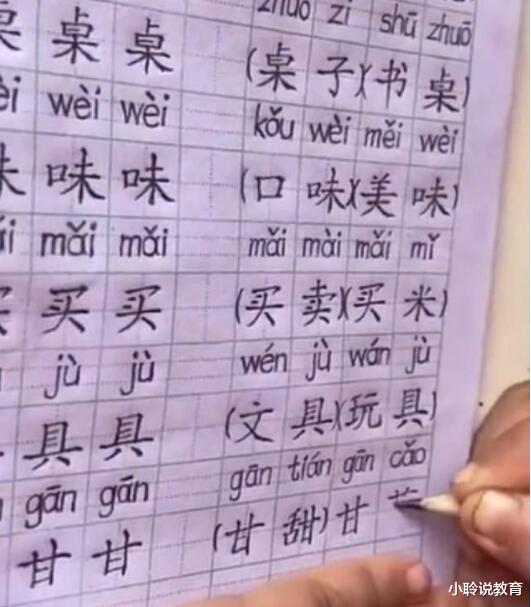 zhuō zi shū zhuō
桌 桌 (桌 子)(书 桌)
wèi wèi kǒu wèi měi wèi
味 味 (口 味)(美 味)
mǎi mǎi mǎi mài mǎi mǐ
买 买 (买 卖)(买 米)
jù jù wén jù wán jù
具 具 (文 具)(玩 具)
gān gān gān tián gān cǎo
甘 甘 (甘 甜)甘
小聆说教育